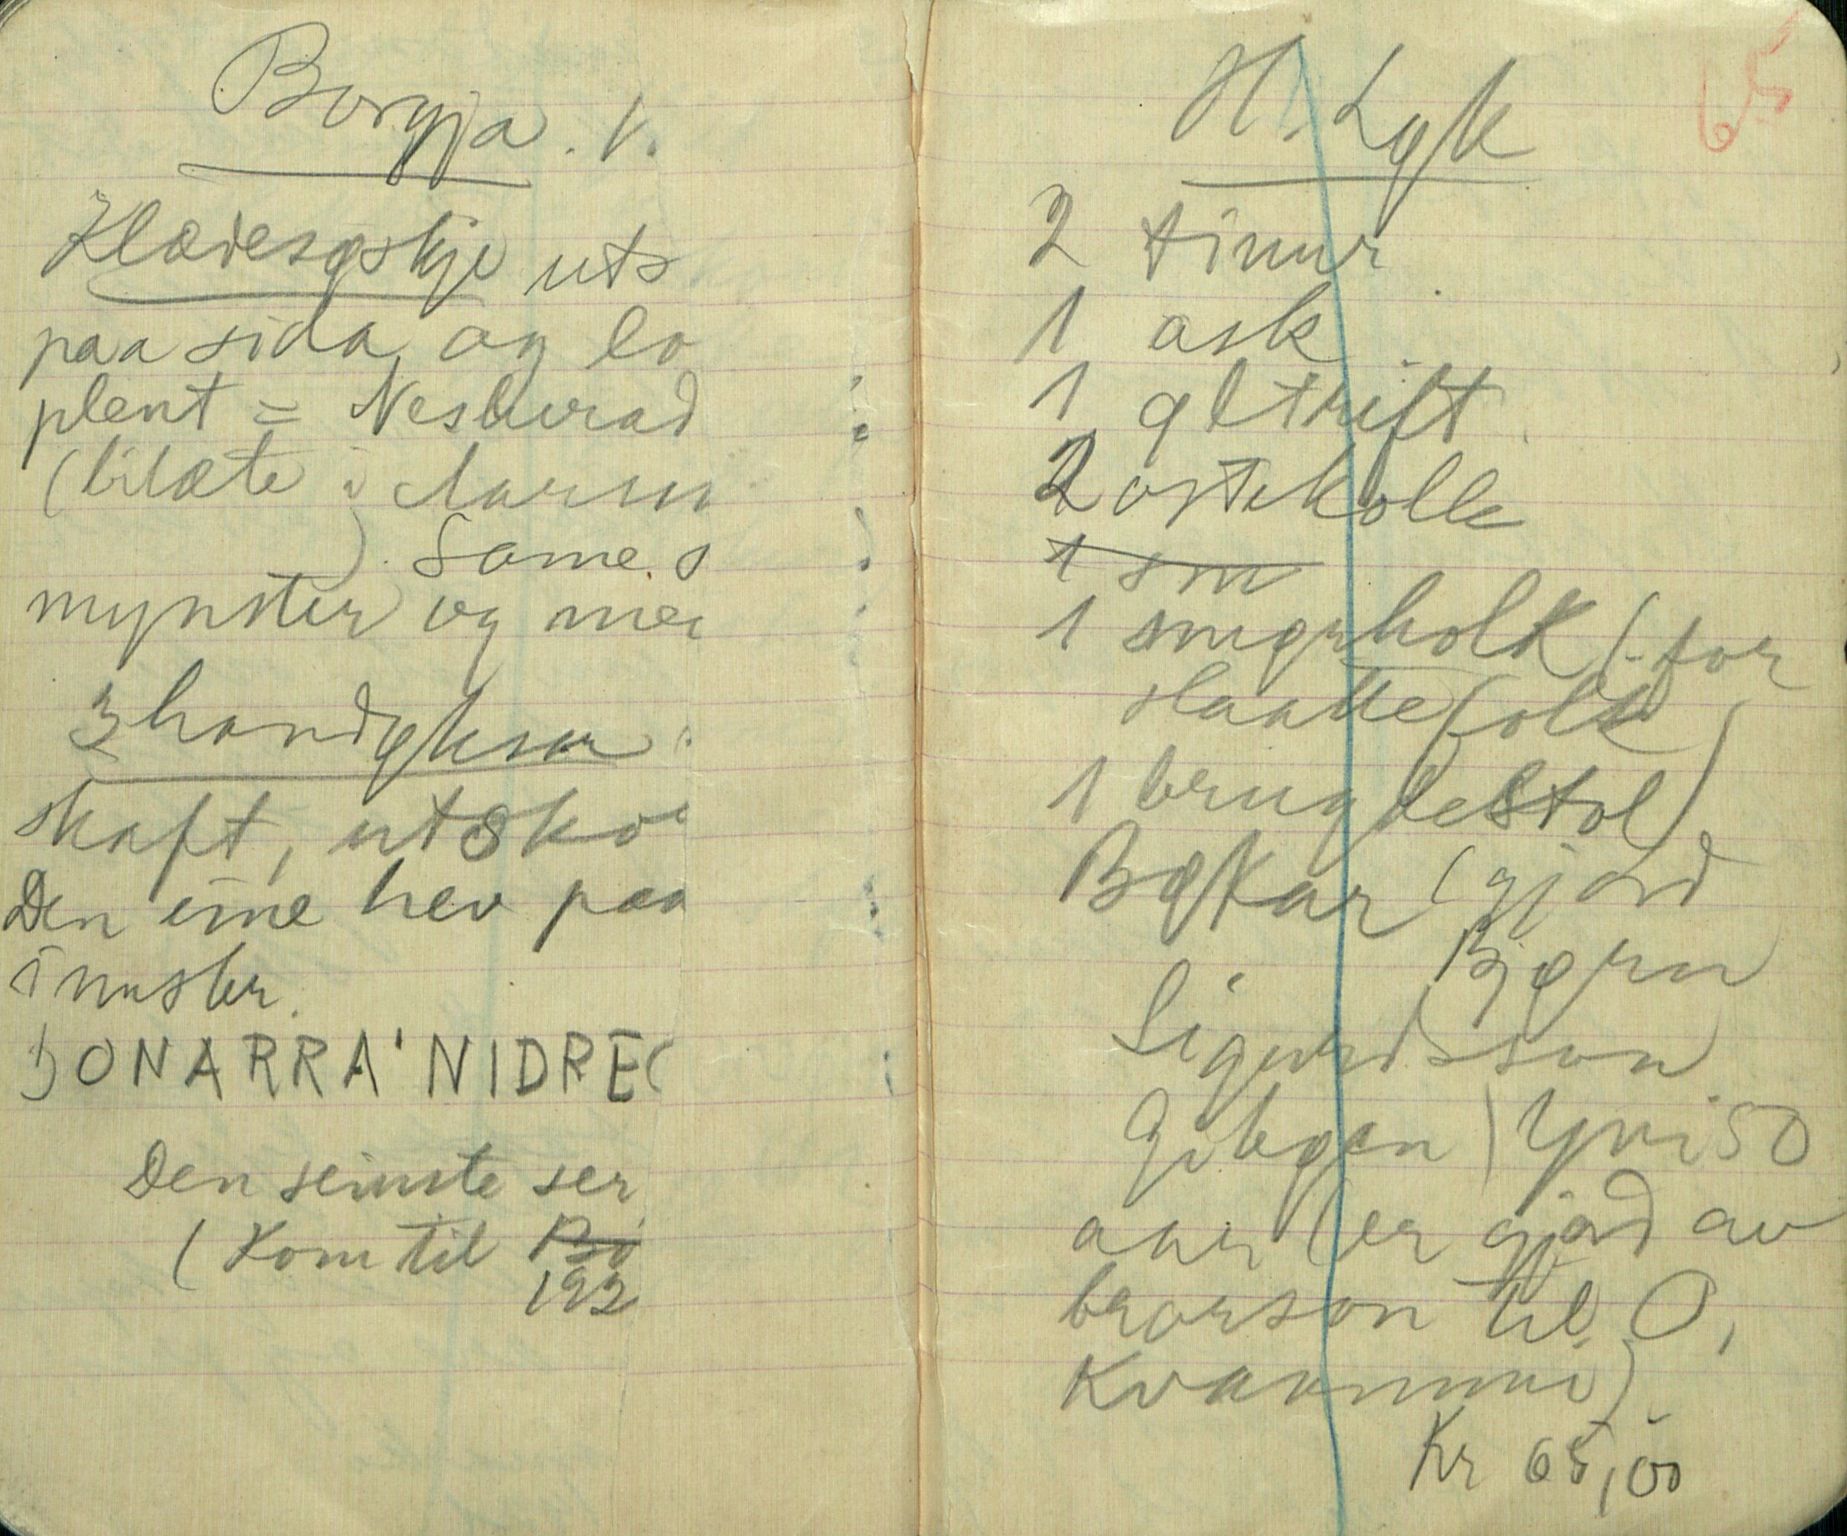 Borgja. 1.
Klædesøskje uts
paa sida og lo
plent = Nesherad
(bilæte i
). Same s
mynster og mei
3 handøksar
skaft, utsko
Den eine hev paa
inuskr.
JONARRA'NIDREC
Den seinste ser
(Kom til Bo
192
65
H. Løk
2 tinur
1 ask
1 øltrift
2 ostekolle
1 sm
1 smørholk (for
slaattefolk)
1 brugdestol
Bøkar (gjord
Bjørn
Sigurdsson
Gilbøen) Yvi 50
aar (er gjord av
brorson til O,
Kvammen)
Kr 65,00